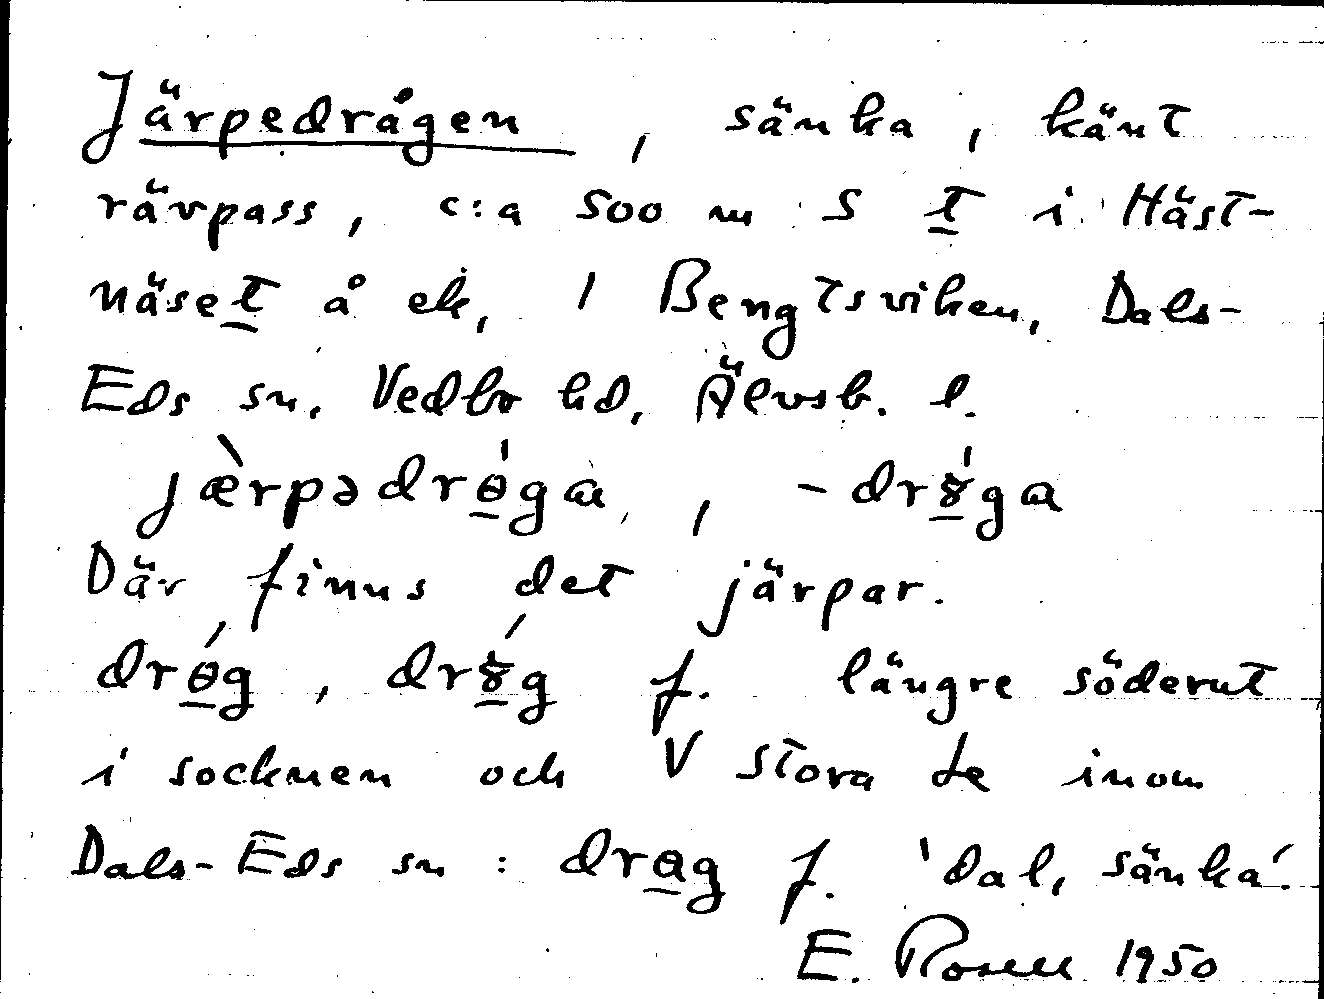 Järpedrågen, sänka, känt
rävpass, c:a 500 m S t i Häst-
näset å ek, 1 Bengtsviken, Dals-
Eds sn, Vedbo hd, Älvsb. l.
jæ̀rpədrө̲́ga, -dr8̲́ga
Där finns det järpar.
drө̲́g, dr8̲́g f. längre söderut
i socknen och V Stora Le inom
Dals-Eds sn: dra̲g f. 'dal, sänka'.
E. Rosell 1950